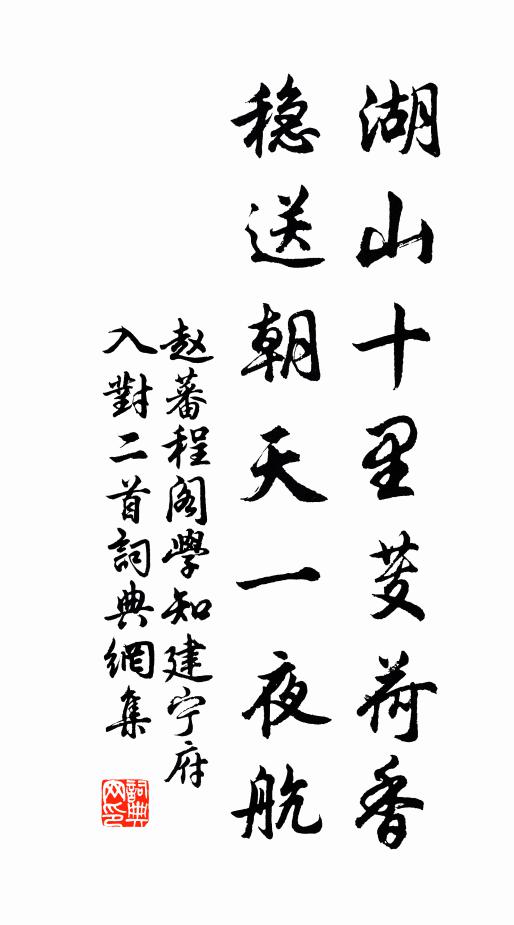 湖山十里芰荷香
稳送朝天一夜航
赵蕃程阁學知建宁府
入對二首詞典網集
詞典
网印